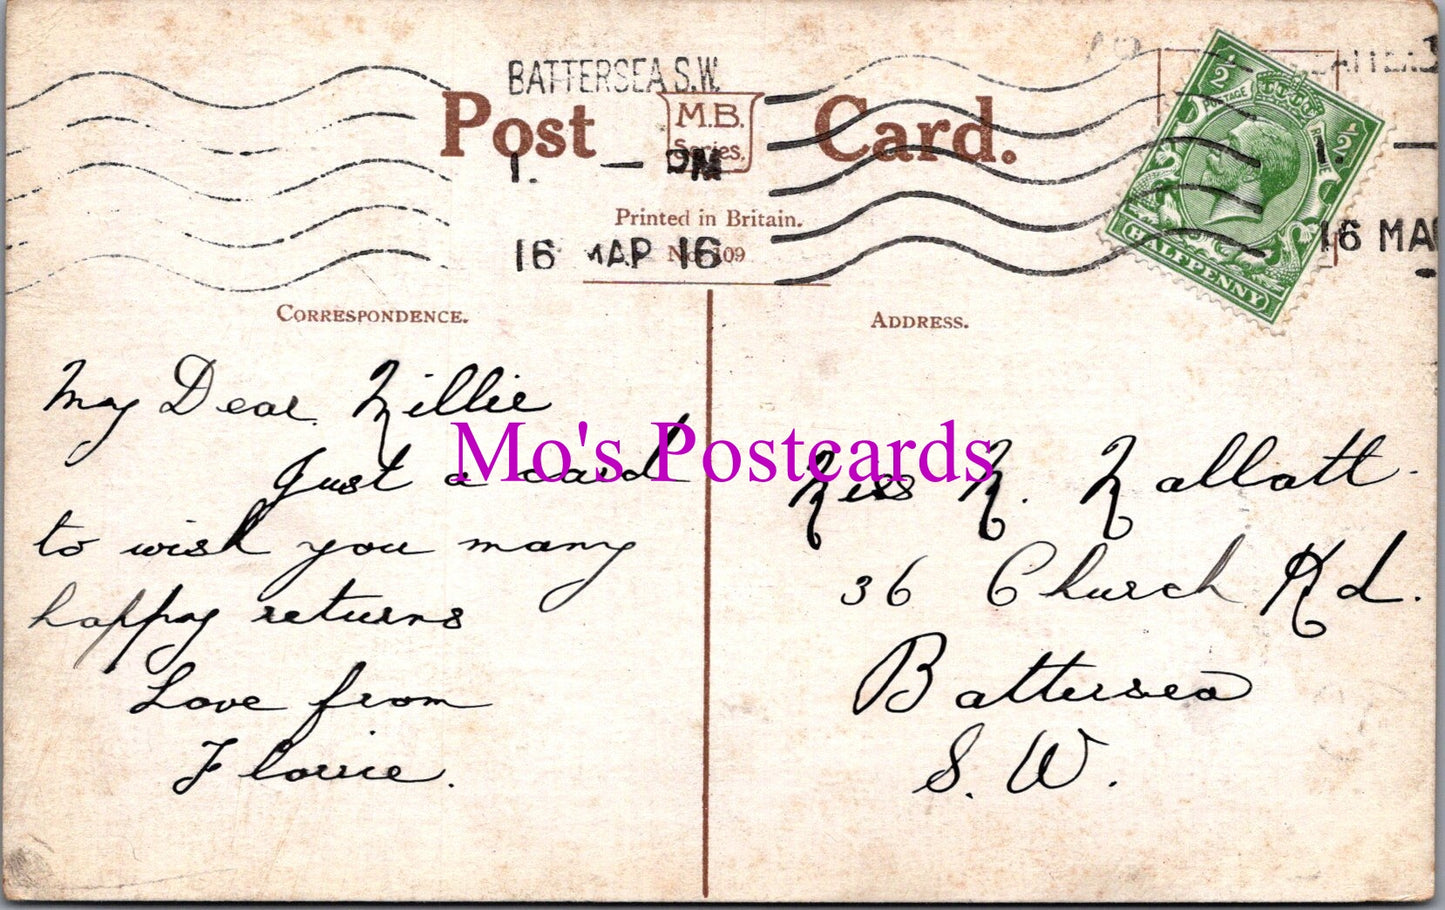 BATTERSEA S.W.
Post M.B. Card.
Series.
1. — PM
Printed in Britain.
16 MAR 16
No.
½ ½
POSTAGE REVENUE
HALFPENNY
1. —
16 MA
CORRESPONDENCE.
ADDRESS.
My Dear Millie
Just a card
to wish you many
happy returns
Love from
Florrie.
Mo's Postcards
Miss M. Mallatt.
36 Church Rd.
Battersea
S. W.